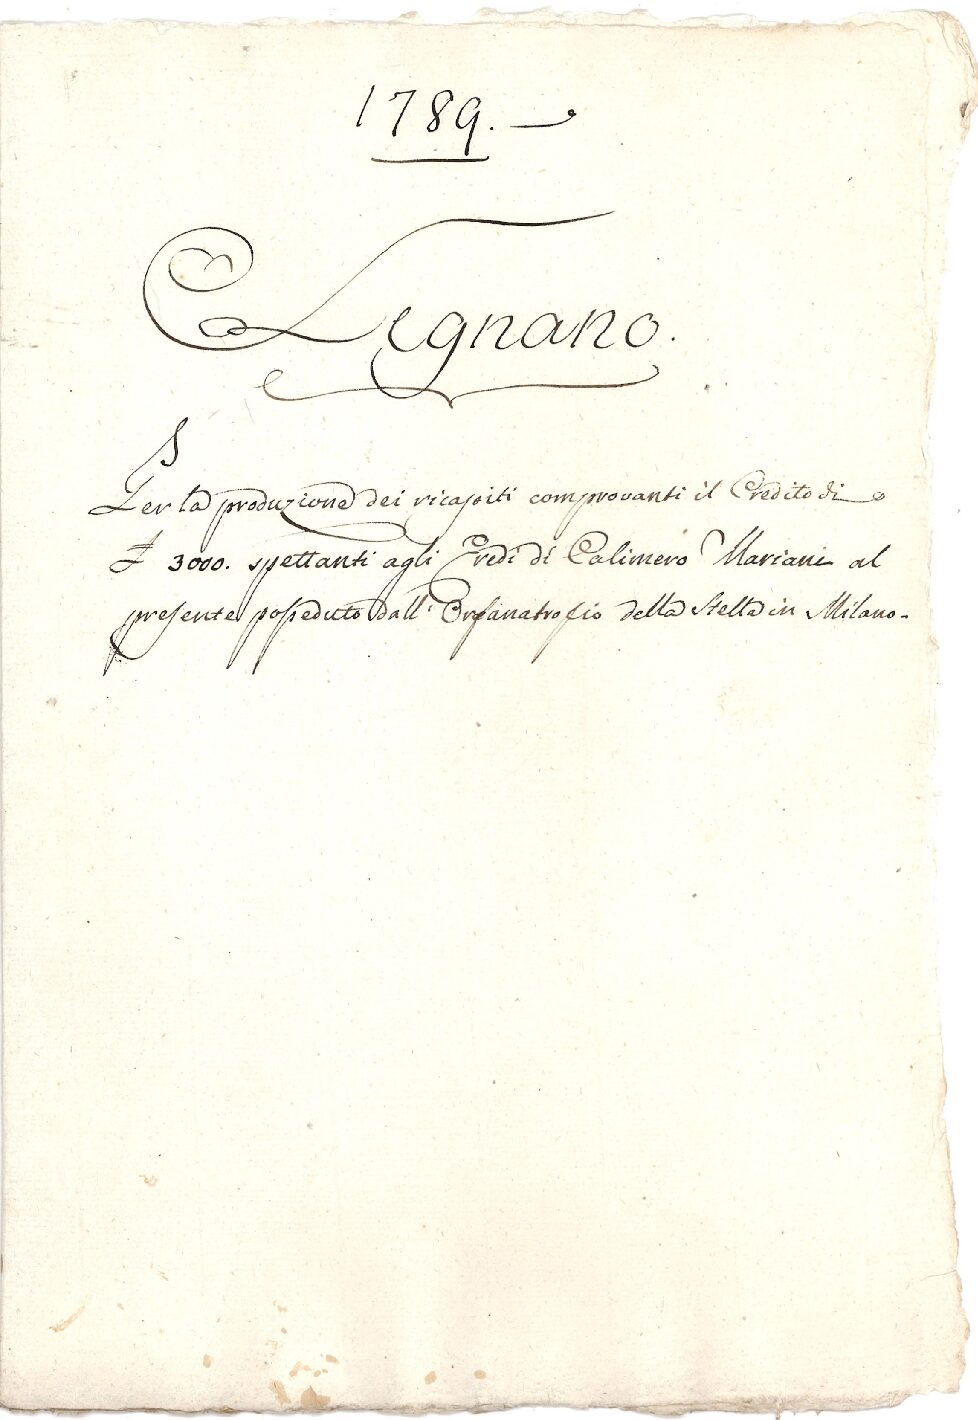 1789.
Legnano.
Per la produzione dei ricapiti comprovanti il Credito di
£ 3000. spettanti agli Eredi di Calimero Mariani al
presente posseduto dall' Orfanatrofio della Stella in Milano.